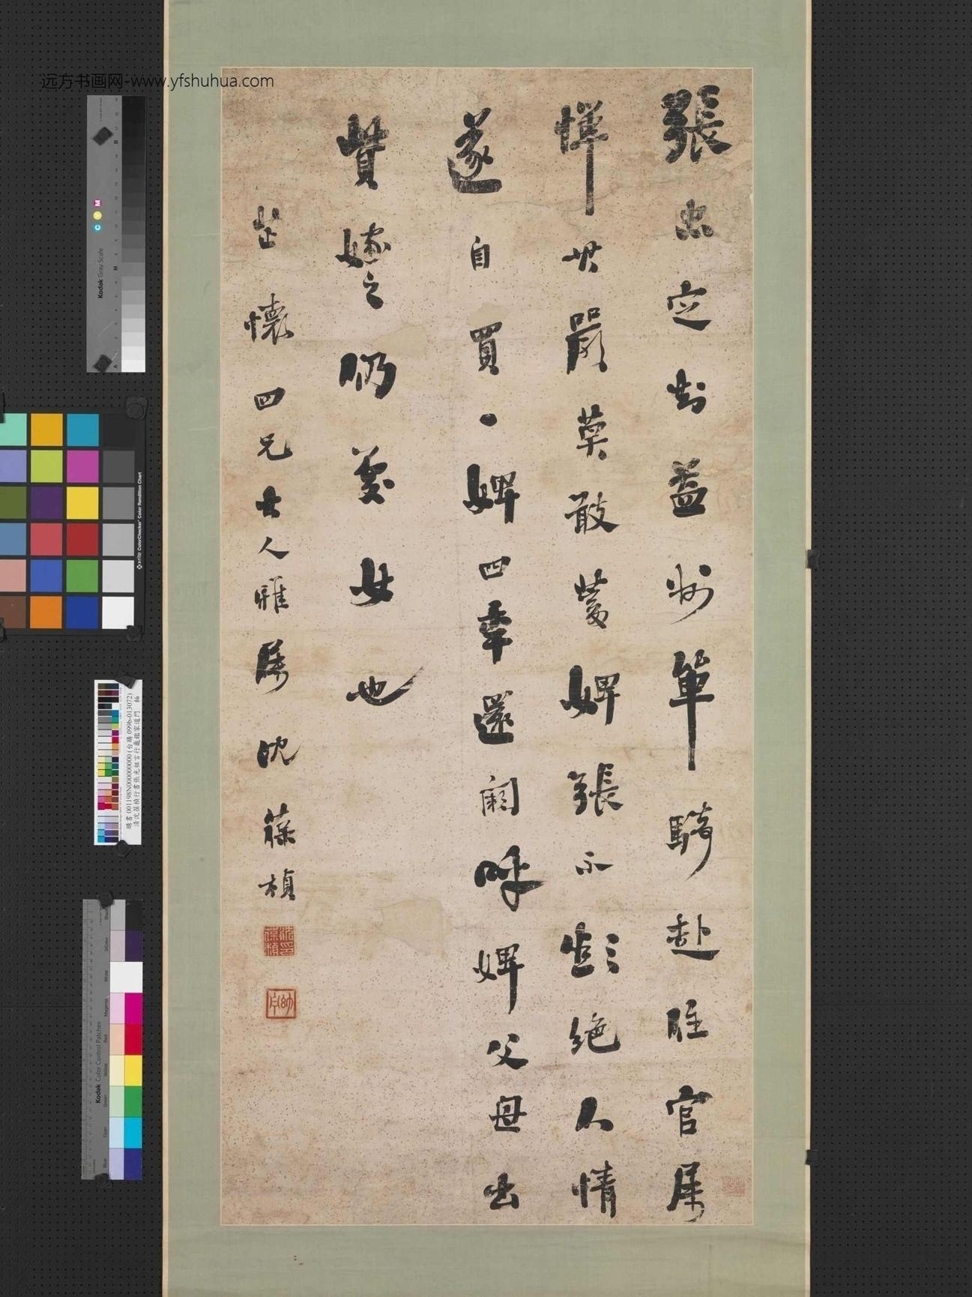 远方书画网-www.yfshuhua.com
張忠定知益州單騎赴任官屬
憚其嚴莫敢蓄婢張不彭絕人情
遂自買一婢四年還闕呼婢父母出
貲嫁之仍處女也
芷懷四兄大人雅屬 沈葆楨
沈葆楨印
幼丹
Kodak Gray Scale
C
Y
M
Kodak Color Control Patches